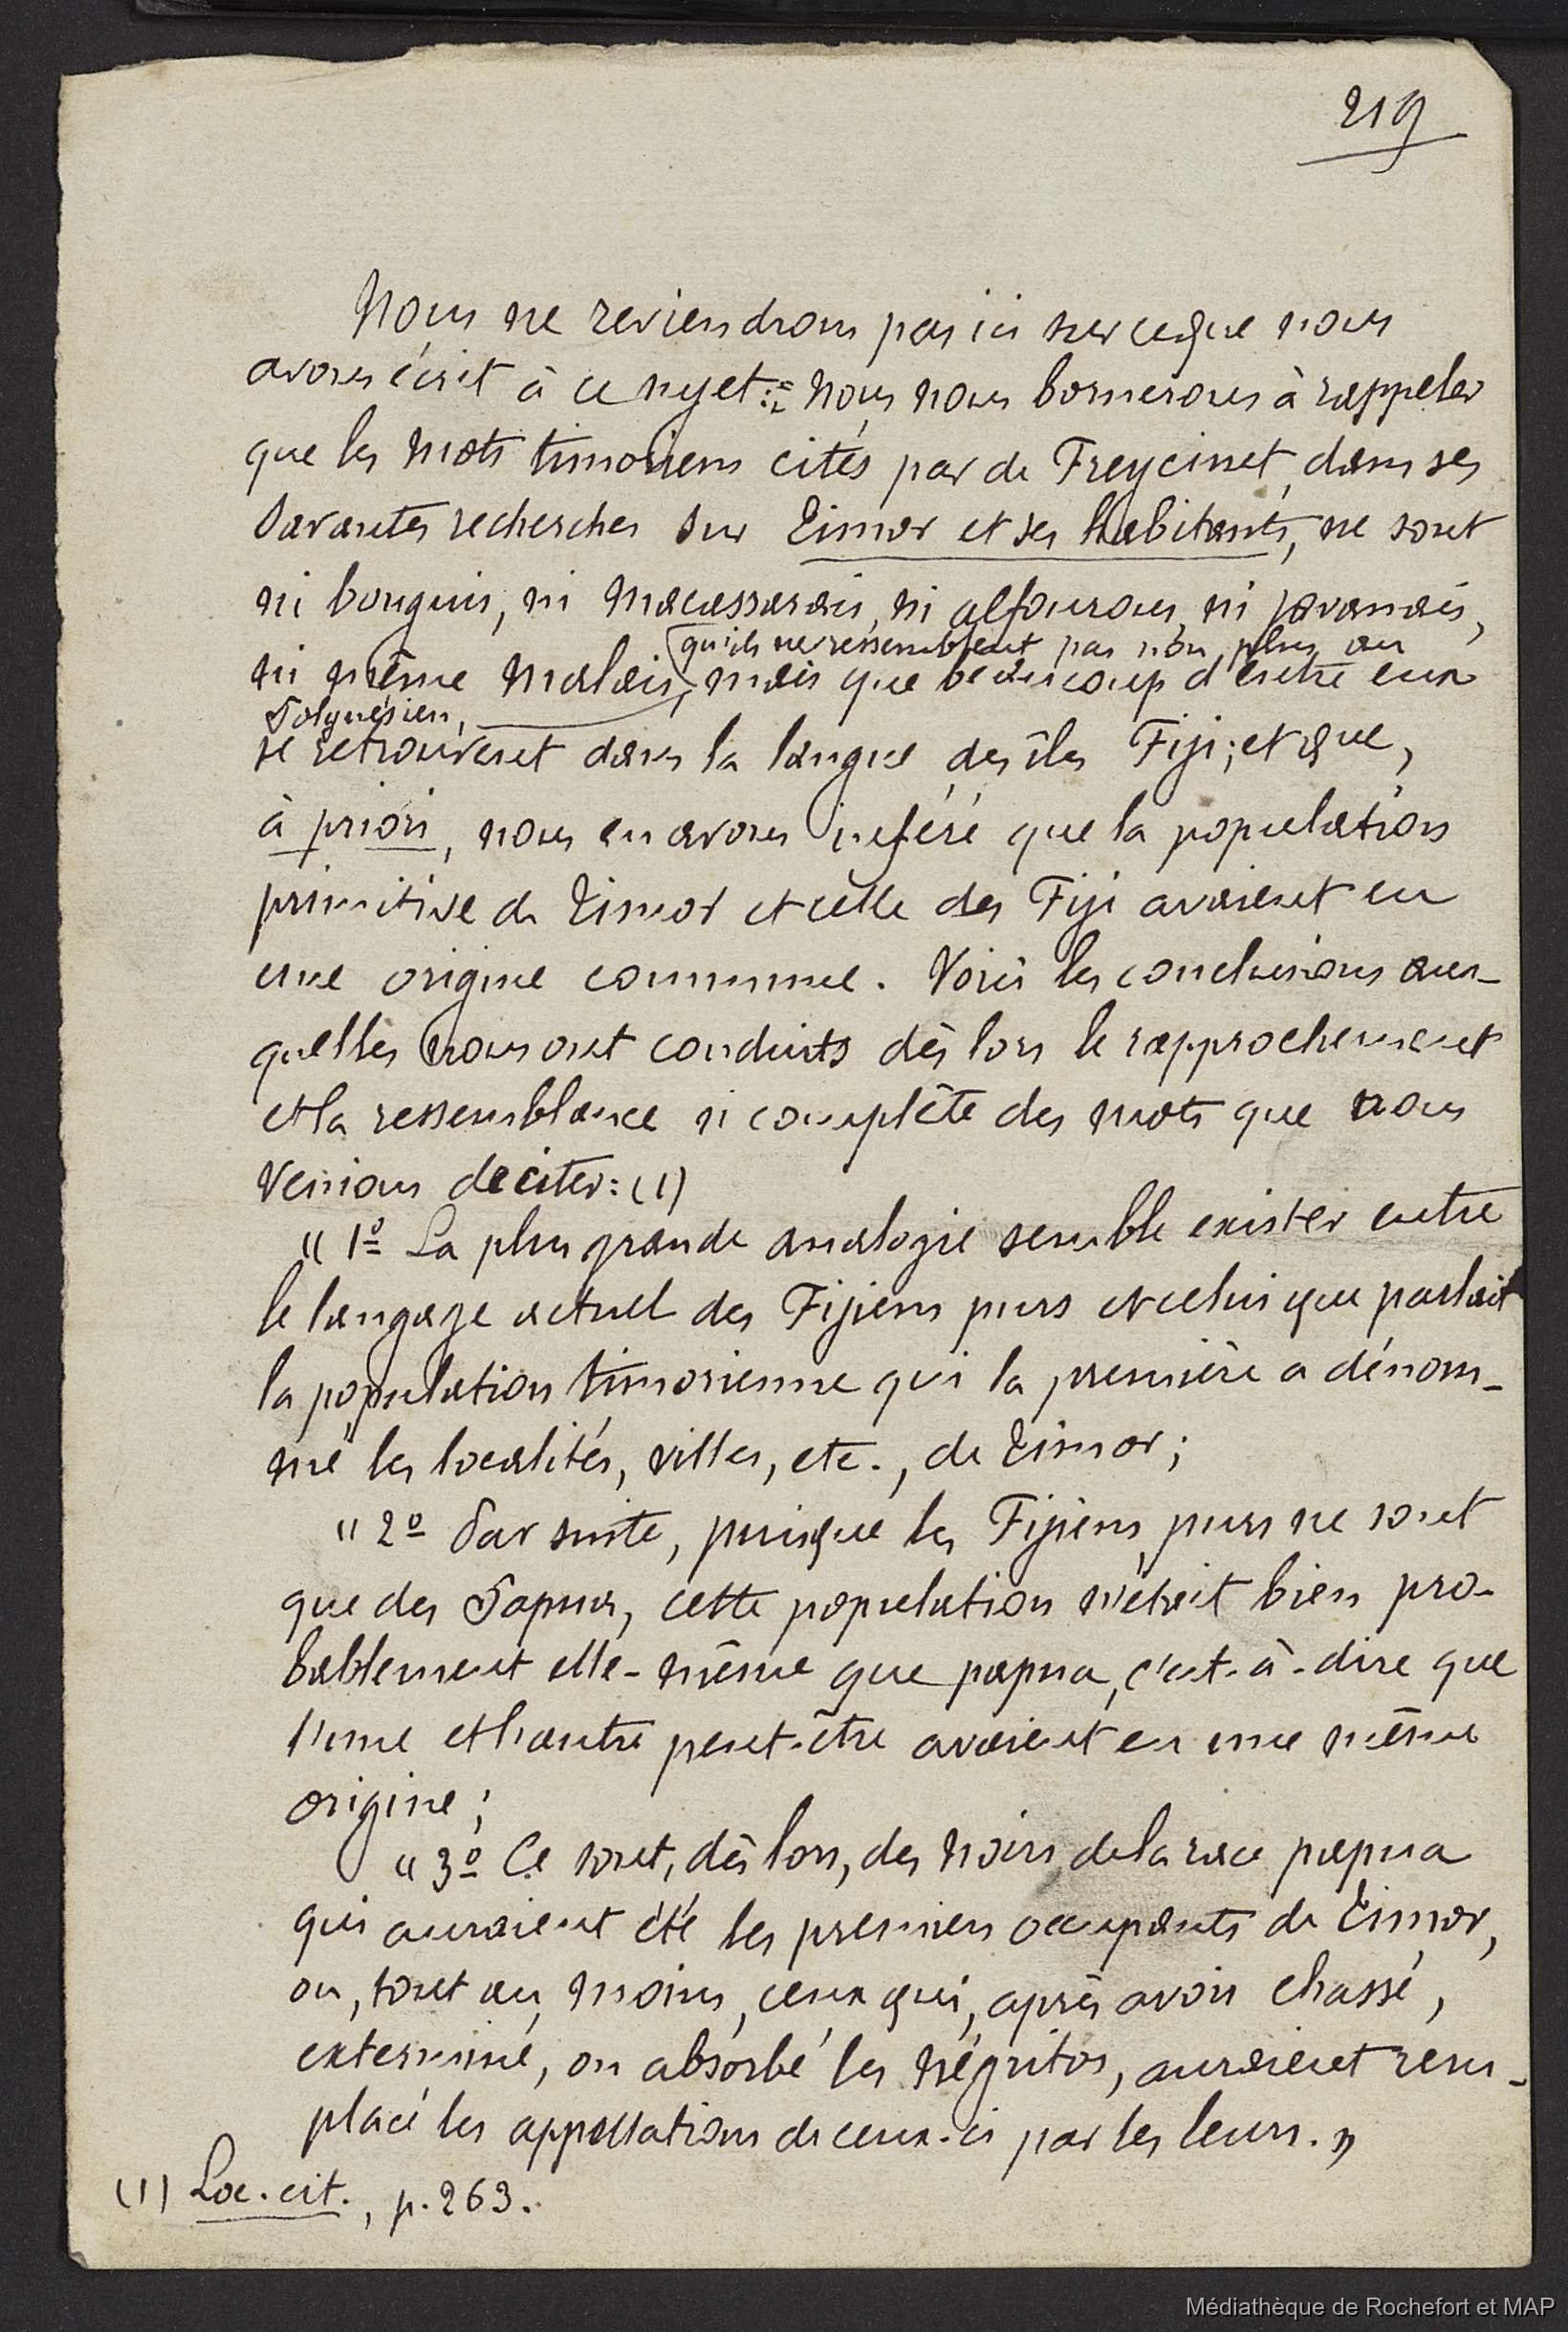 219
Nous ne reviendrons pas ici sur ce que nous
avons écrit à ce sujet : Nous nous bornerons à rappeler
que les mots timoriens cités par de Freycinet, dans ses
Savantes recherches sur Timor et ses habitants, ne sont
ni bouguis, ni Macassarais, ni alfourous, ni javanais,
qu'ils ne ressemblent pas non plus au
ni même Malais, mais que beaucoup d'entre eux
Polynésien,
se retrouvent dans la langue des îles Fiji ; et que,
à priori, nous en avons inféré que la population
primitive de Timor et celle des Fiji avaient eu
une origine commune. Voici les conclusions aux-
quelles nous ont conduits dès lors le rapprochement
et la ressemblance si complète des mots que nous
venions de citer : (1)
« 1º La plus grande analogie semble exister entre
le langage actuel des Fijiens purs et celui que parlait
la population timorienne qui la première a dénom-
mé les localités, villes, etc., de Timor ;
« 2º Par suite, puisque les Fijiens purs ne sont
que des Papuas, cette population n'était bien pro-
bablement elle-même que papua, c'est-à-dire que
l'une et l'autre peut-être avaient eu une même
origine ;
« 3º Ce sont, dès lors, des Noirs de la race papua
qui auraient été les premiers occupants de Timor,
ou, tout au moins, ceux qui, après avoir chassé,
exterminé, ou absorbé les Négritos, auraient rem-
placé les appellations de ceux-ci par les leurs. »
(1) Loc. cit., p. 263.
Médiathèque de Rochefort et MAP